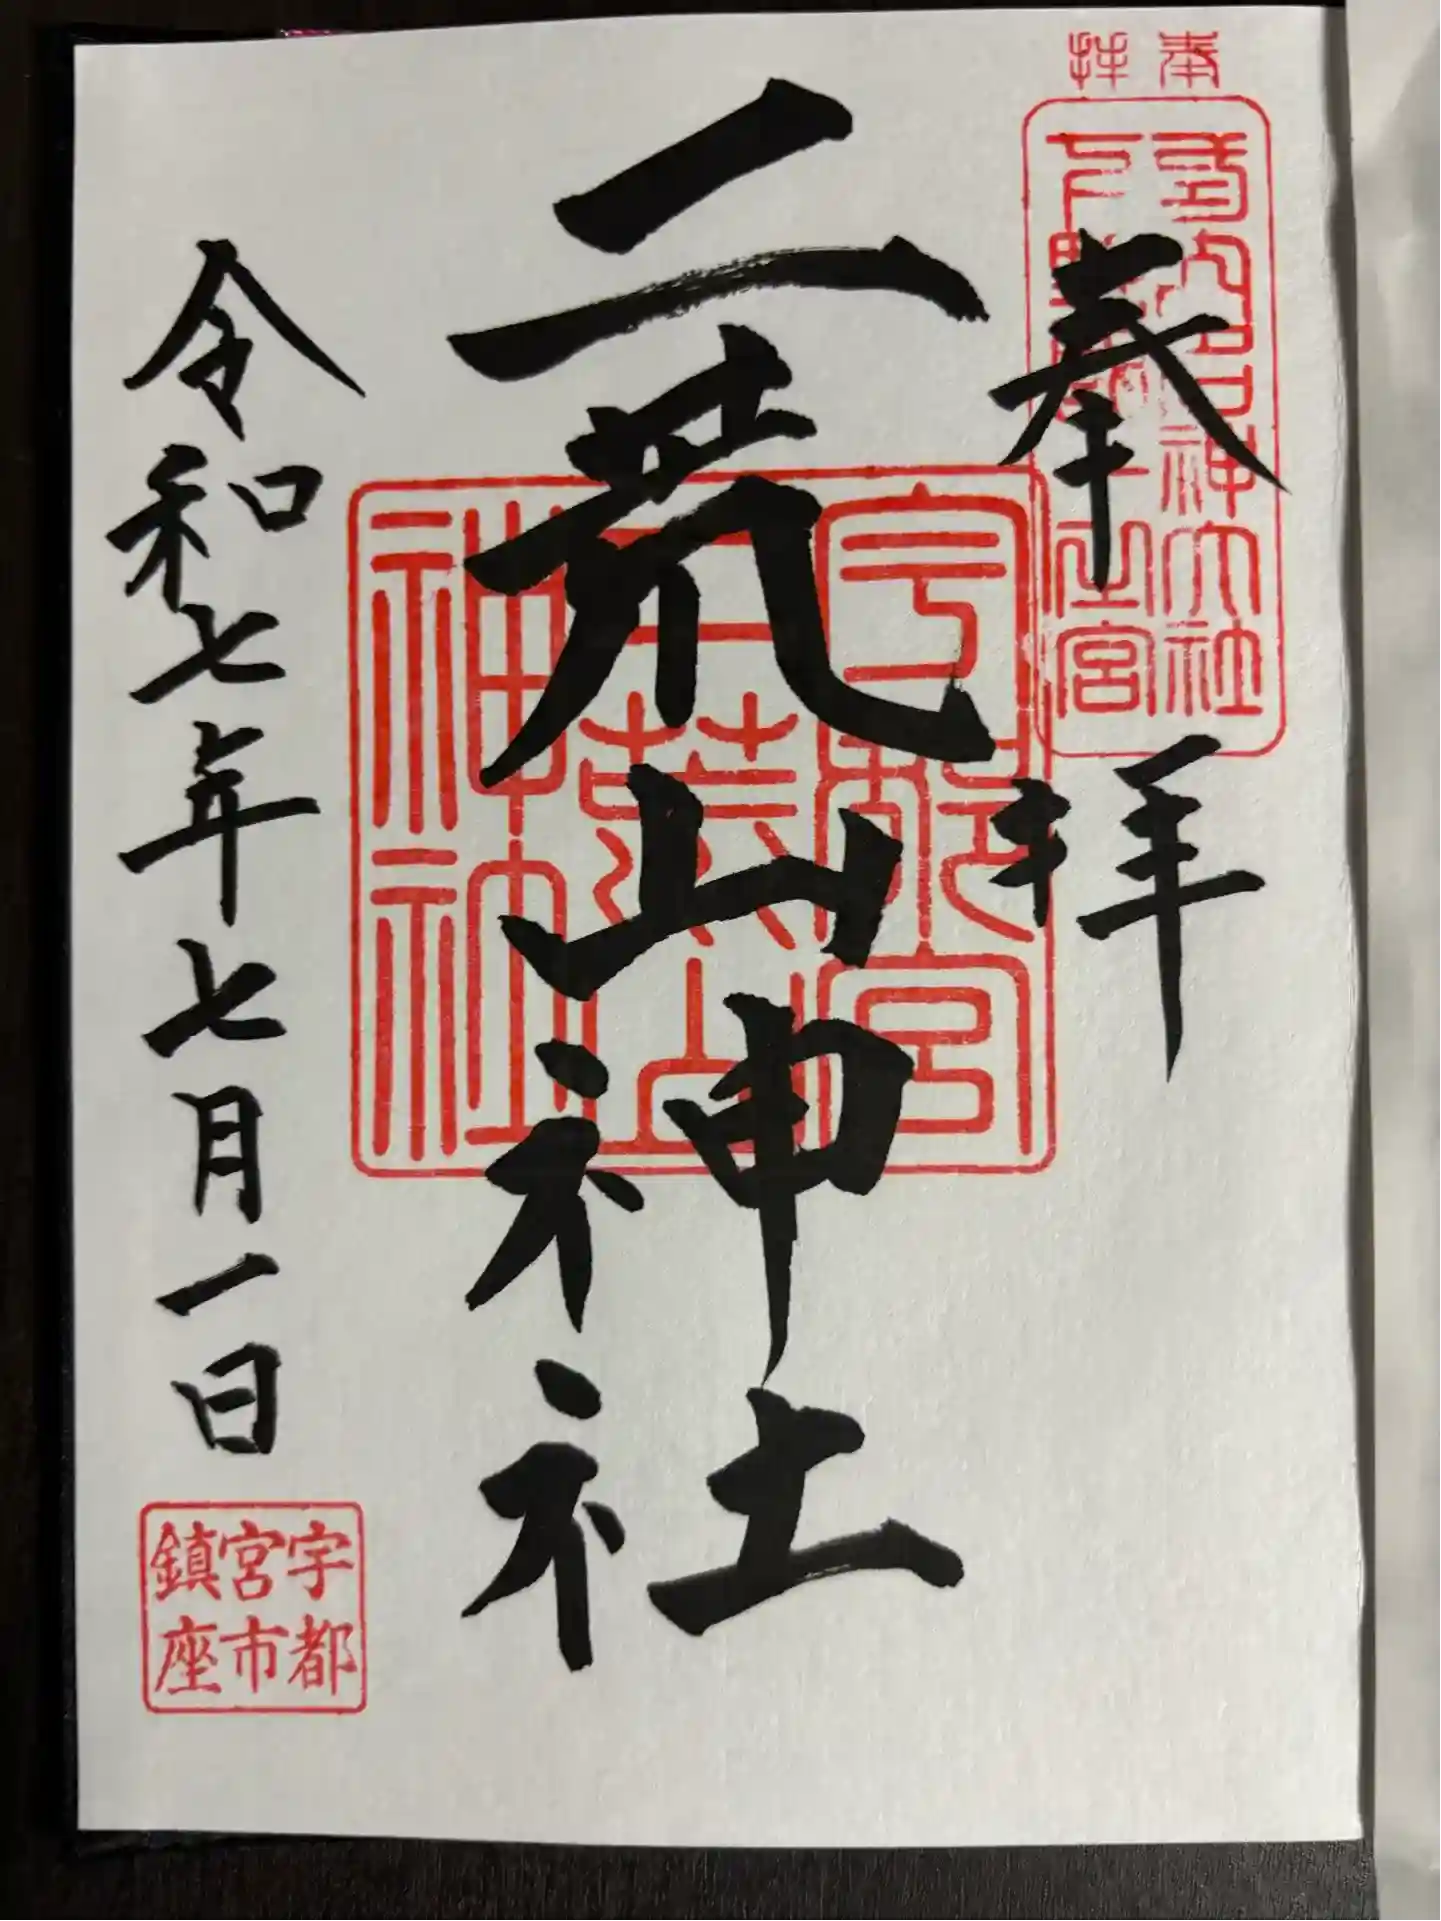 奉拝
延喜式内名神大社
下野國一之宮
奉拝
二荒山神社
宇都宮
二荒山
神社
令和七年七月一日
宇都
宮市
鎮座